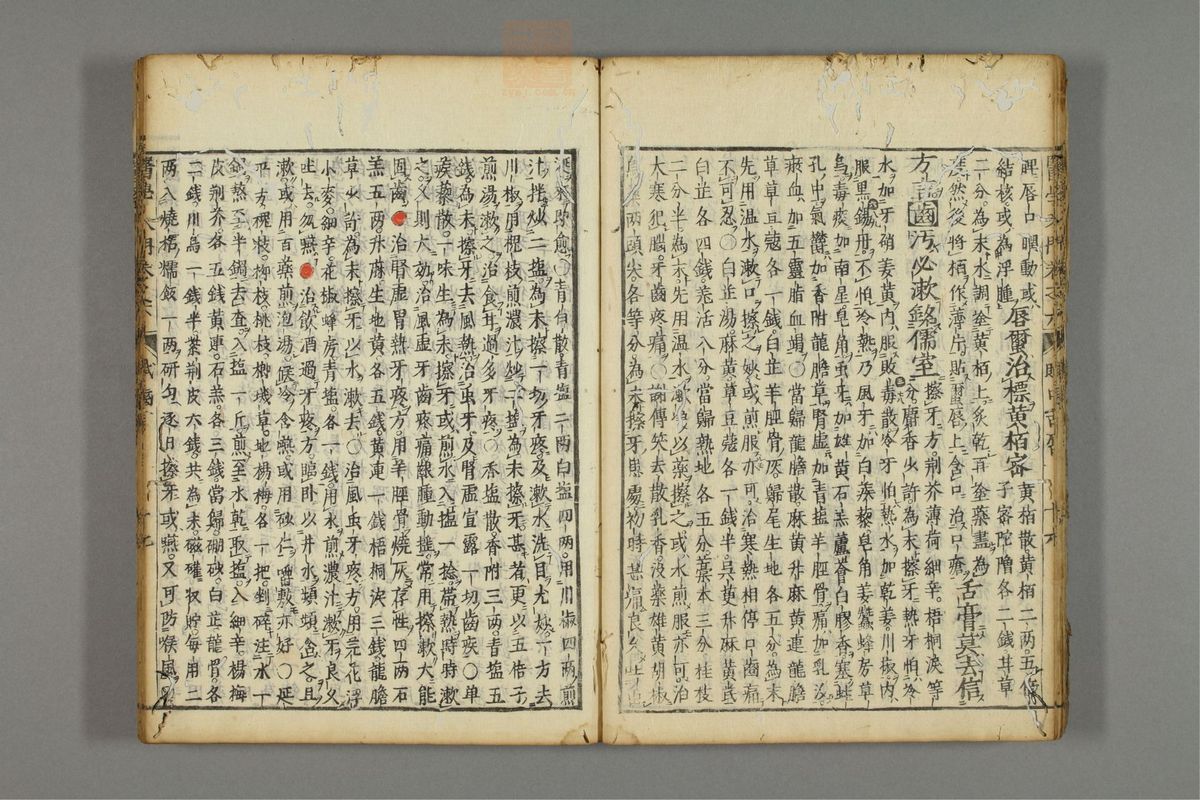 脾唇口瞤動或
唇爾治標黃栢容
黃栢散黃栢二兩五倍
結核或為浮腫
子密陀僧各二錢甘草
二分為末水調塗黃栢上炙乾再塗藥盡為
度然後將栢作薄片貼唇上含口治口瘡
舌膏莫去信
方詰齒汚必漱銘儒室
擦牙方荆芥薄荷細辛梧桐淚等
分麝香少許為末擦牙熱牙怕冷
水加牙硝姜黃內服敗毒散冷牙怕熱水加乾姜川椒內
服黑錫丹不怕冷熱乃風牙加白蒺藜皂角姜蠶蜂房草
烏毒痰加南星皂角虫牙加雄黃石羔蘆薈白膠香塞蛀
孔中氣鬱加香附龍膽草腎虛加青塩羊脛骨痛加乳沒
瘀血加五靈脂血竭〇當歸龍膽散麻黃升麻黃連龍膽
草草豆蔻各一錢白芷羊脛骨灰歸尾生地各五分為末
先用温水漱口擦之妙或煎服亦可治寒熱相停口齒痛
不可忍〇白芷湯麻黃草豆蔻各一錢半吳茰升麻黃芪
白芷各四錢羌活八分當歸熱地各五分藁本三分桂枝
二分半為末先用温水漱後以藥擦之或水煎服亦可治
大寒犯腦牙齒疼痛〇謝傳笑去散乳香沒藥雄黃胡椒
烏藥兩頭尖各等分為末擦牙患處初時甚痛良久
〇青白散青塩二兩白塩四兩用川椒四兩煎
汁拌炒二塩為末擦一切牙疼及漱水洗目尤妙一方去
川椒用槐枝煎濃汁炒二塩為末擦牙甚者更以五倍子
煎湯漱之治食甘過多牙疼〇香塩散香附三兩青塩五
錢為末擦牙去風熱治虫牙及腎虛宣露一切齒疾〇单
蒺藜散一味生為末擦牙或煎水入塩一捻帯熱時時漱
之又則大効治風虛牙齒疼痛齦腫動搖常用擦漱大能
固齒治腎虛胃熱牙疼方用羊脛骨燒灰存性四兩石
羔五兩升麻生地黃各五錢黃連一錢梧桐淚三錢龍膽
草少許為末擦牙以水漱去〇治風虫牙疼方用芫花浮
小麥細辛花椒蜂房青塩各一錢用水煎濃汁漱牙良久
吐去勿嚥治飲酒過牙疼方臨卧以井水頻頻含之且
漱或用百藥煎泡湯候冷含嚥或用砂仁嚼敷亦好〇延
平方槐枝柳枝桃枝椰瑰草地楊梅各一把剉碎注水一
鍋熬至半鍋去査入塩一斤煎至水乾取塩入細辛楊梅
皮荆芥各五錢黃連石羔各三錢當歸硼砂白芷龍骨各
二錢川烏一錢半茶荆皮六錢共為末磁礶収貯每用二
兩入燒栢糯飯一兩研勻逐日擦牙或嚥又可防喉風